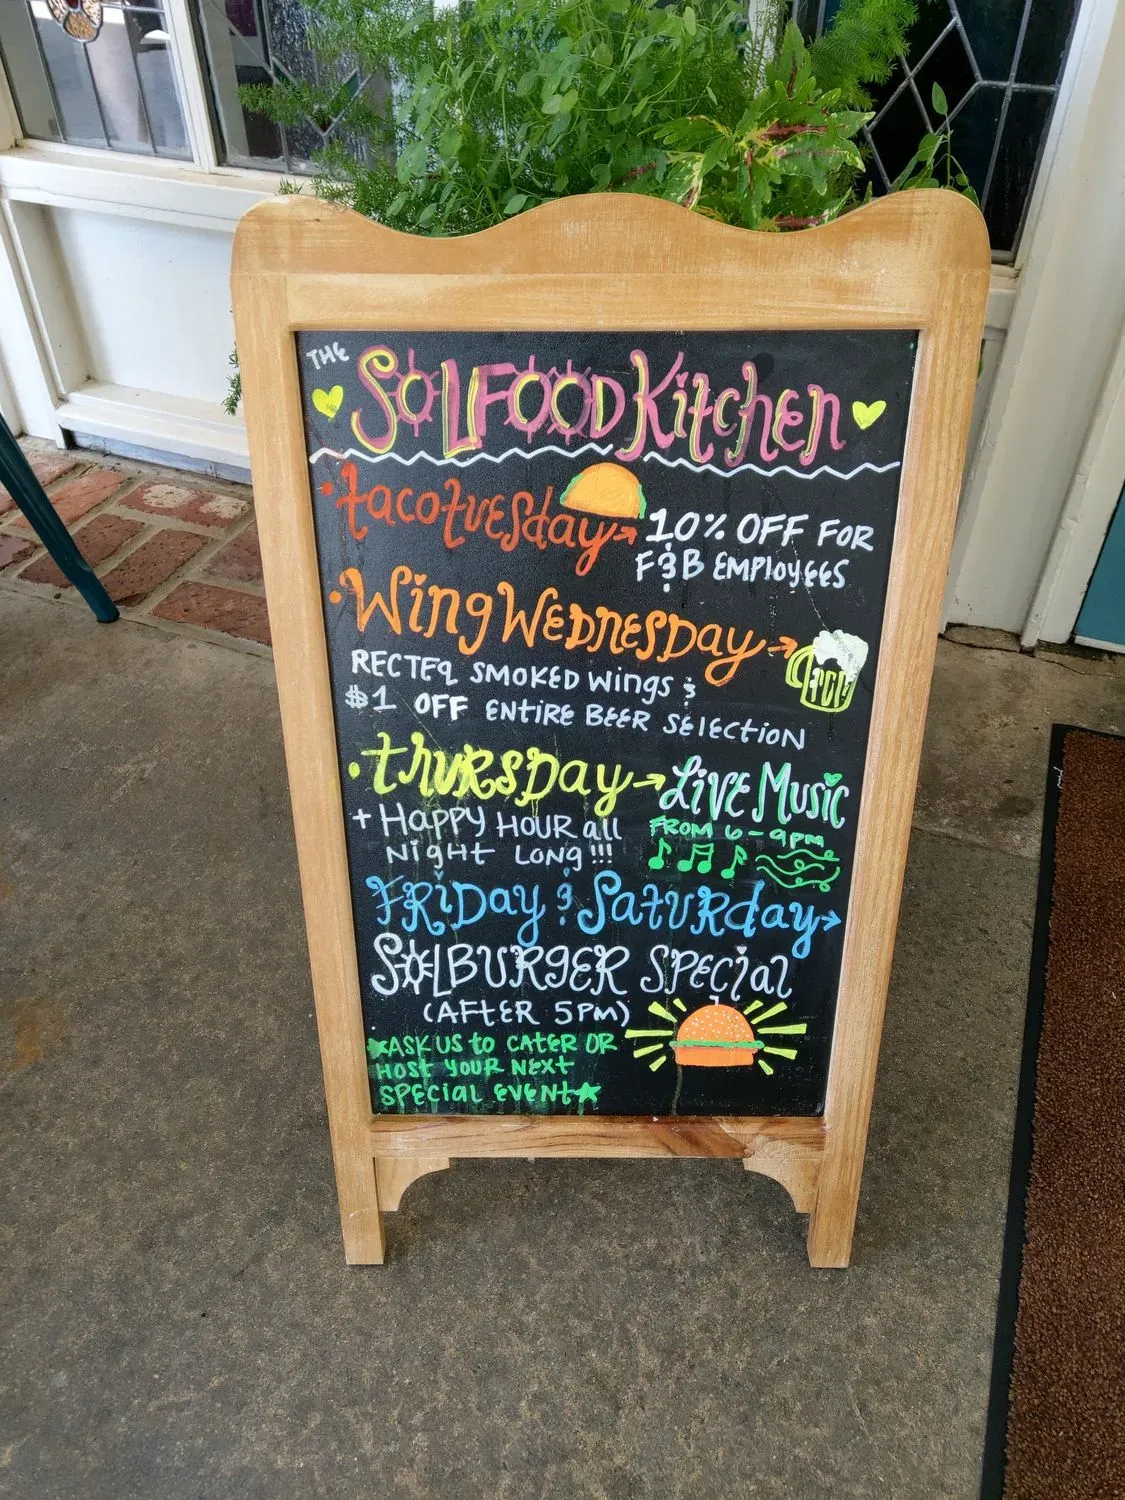 THE
SOLFOOD Kitchen
taco tuesday → 10% OFF FOR
F&B EMPloyEES
• Wing WEDNESDay →
RECTEQ SMOKED Wings &
$1 OFF ENTIRE BEER SElECTiON
• thuRSDay → LiVE Music
+ HaPPY HOUR all
NigHt LONg!!!
FROM 6-9pm
FRiDay & SatURday →
SOLBURGER SPECial
(AFtER 5PM)
*ASK US to CatER OR
HOSt YOUR NEXt
SPECial EVENt★